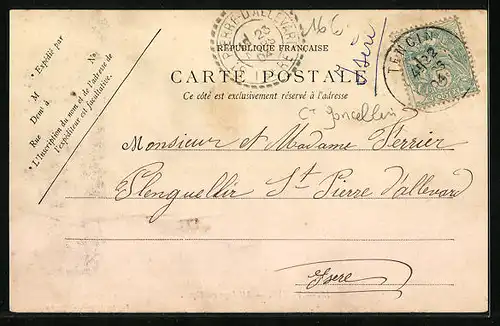 ST PIERRE-D'ALLEVARD
23
04
ISERE
166
Isère
TENCIN
22
04
RÉPUBLIQUE FRANÇAISE
CARTE POSTALE
Ce côté est exclusivement réservé à l'adresse
• Expédié par
M
Demt à
Rue
No
• L'Inscription du nom et de l'adresse de
l'expéditeur est facultative.
Cn Goncelin
Monsieur et Madame Ferrier
St Pierre d'allevard
Isere